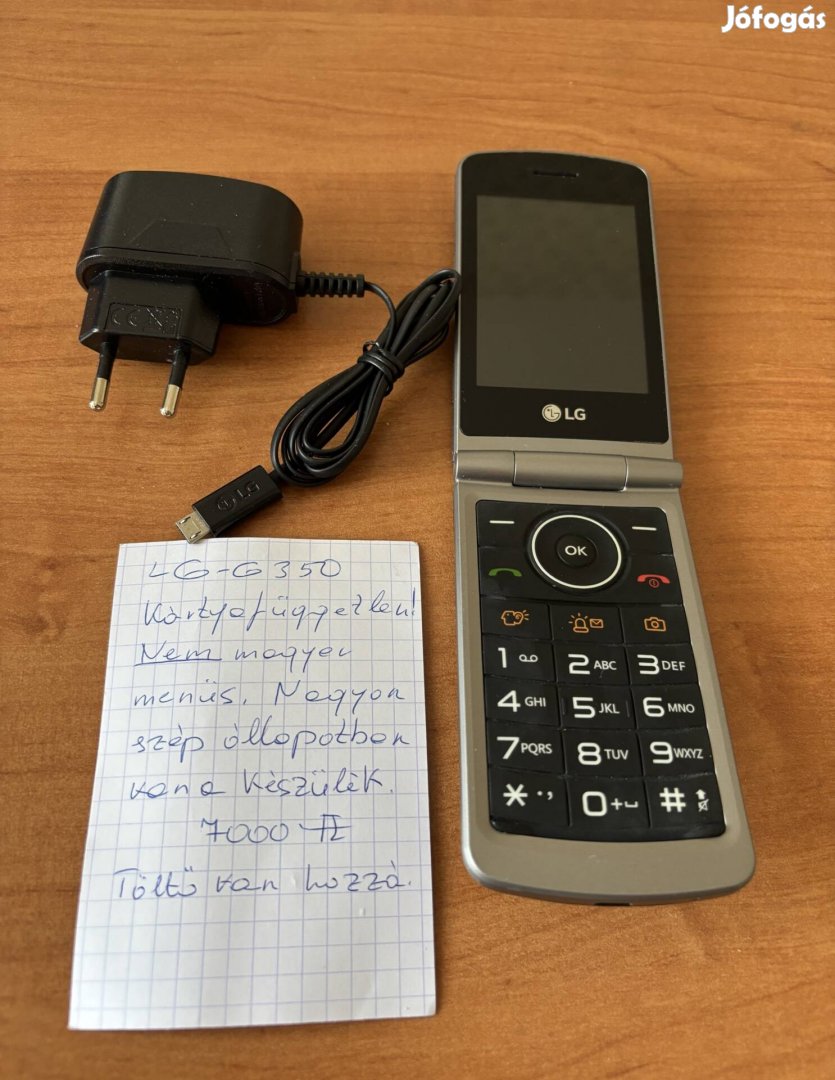 Jófogás
LG
LG
CE
OK
1
2 ABC
3 DEF
4 GHI
5 JKL
6 MNO
7 PQRS
8 TUV
9 WXYZ
* . ,
0 + ⎵
#
LG-G350
Kártyafüggetlen!
Nem magyar
menüs. Nagyon
szép állapotban
van a készülék.
7000 Ft
Töltő van hozzá.